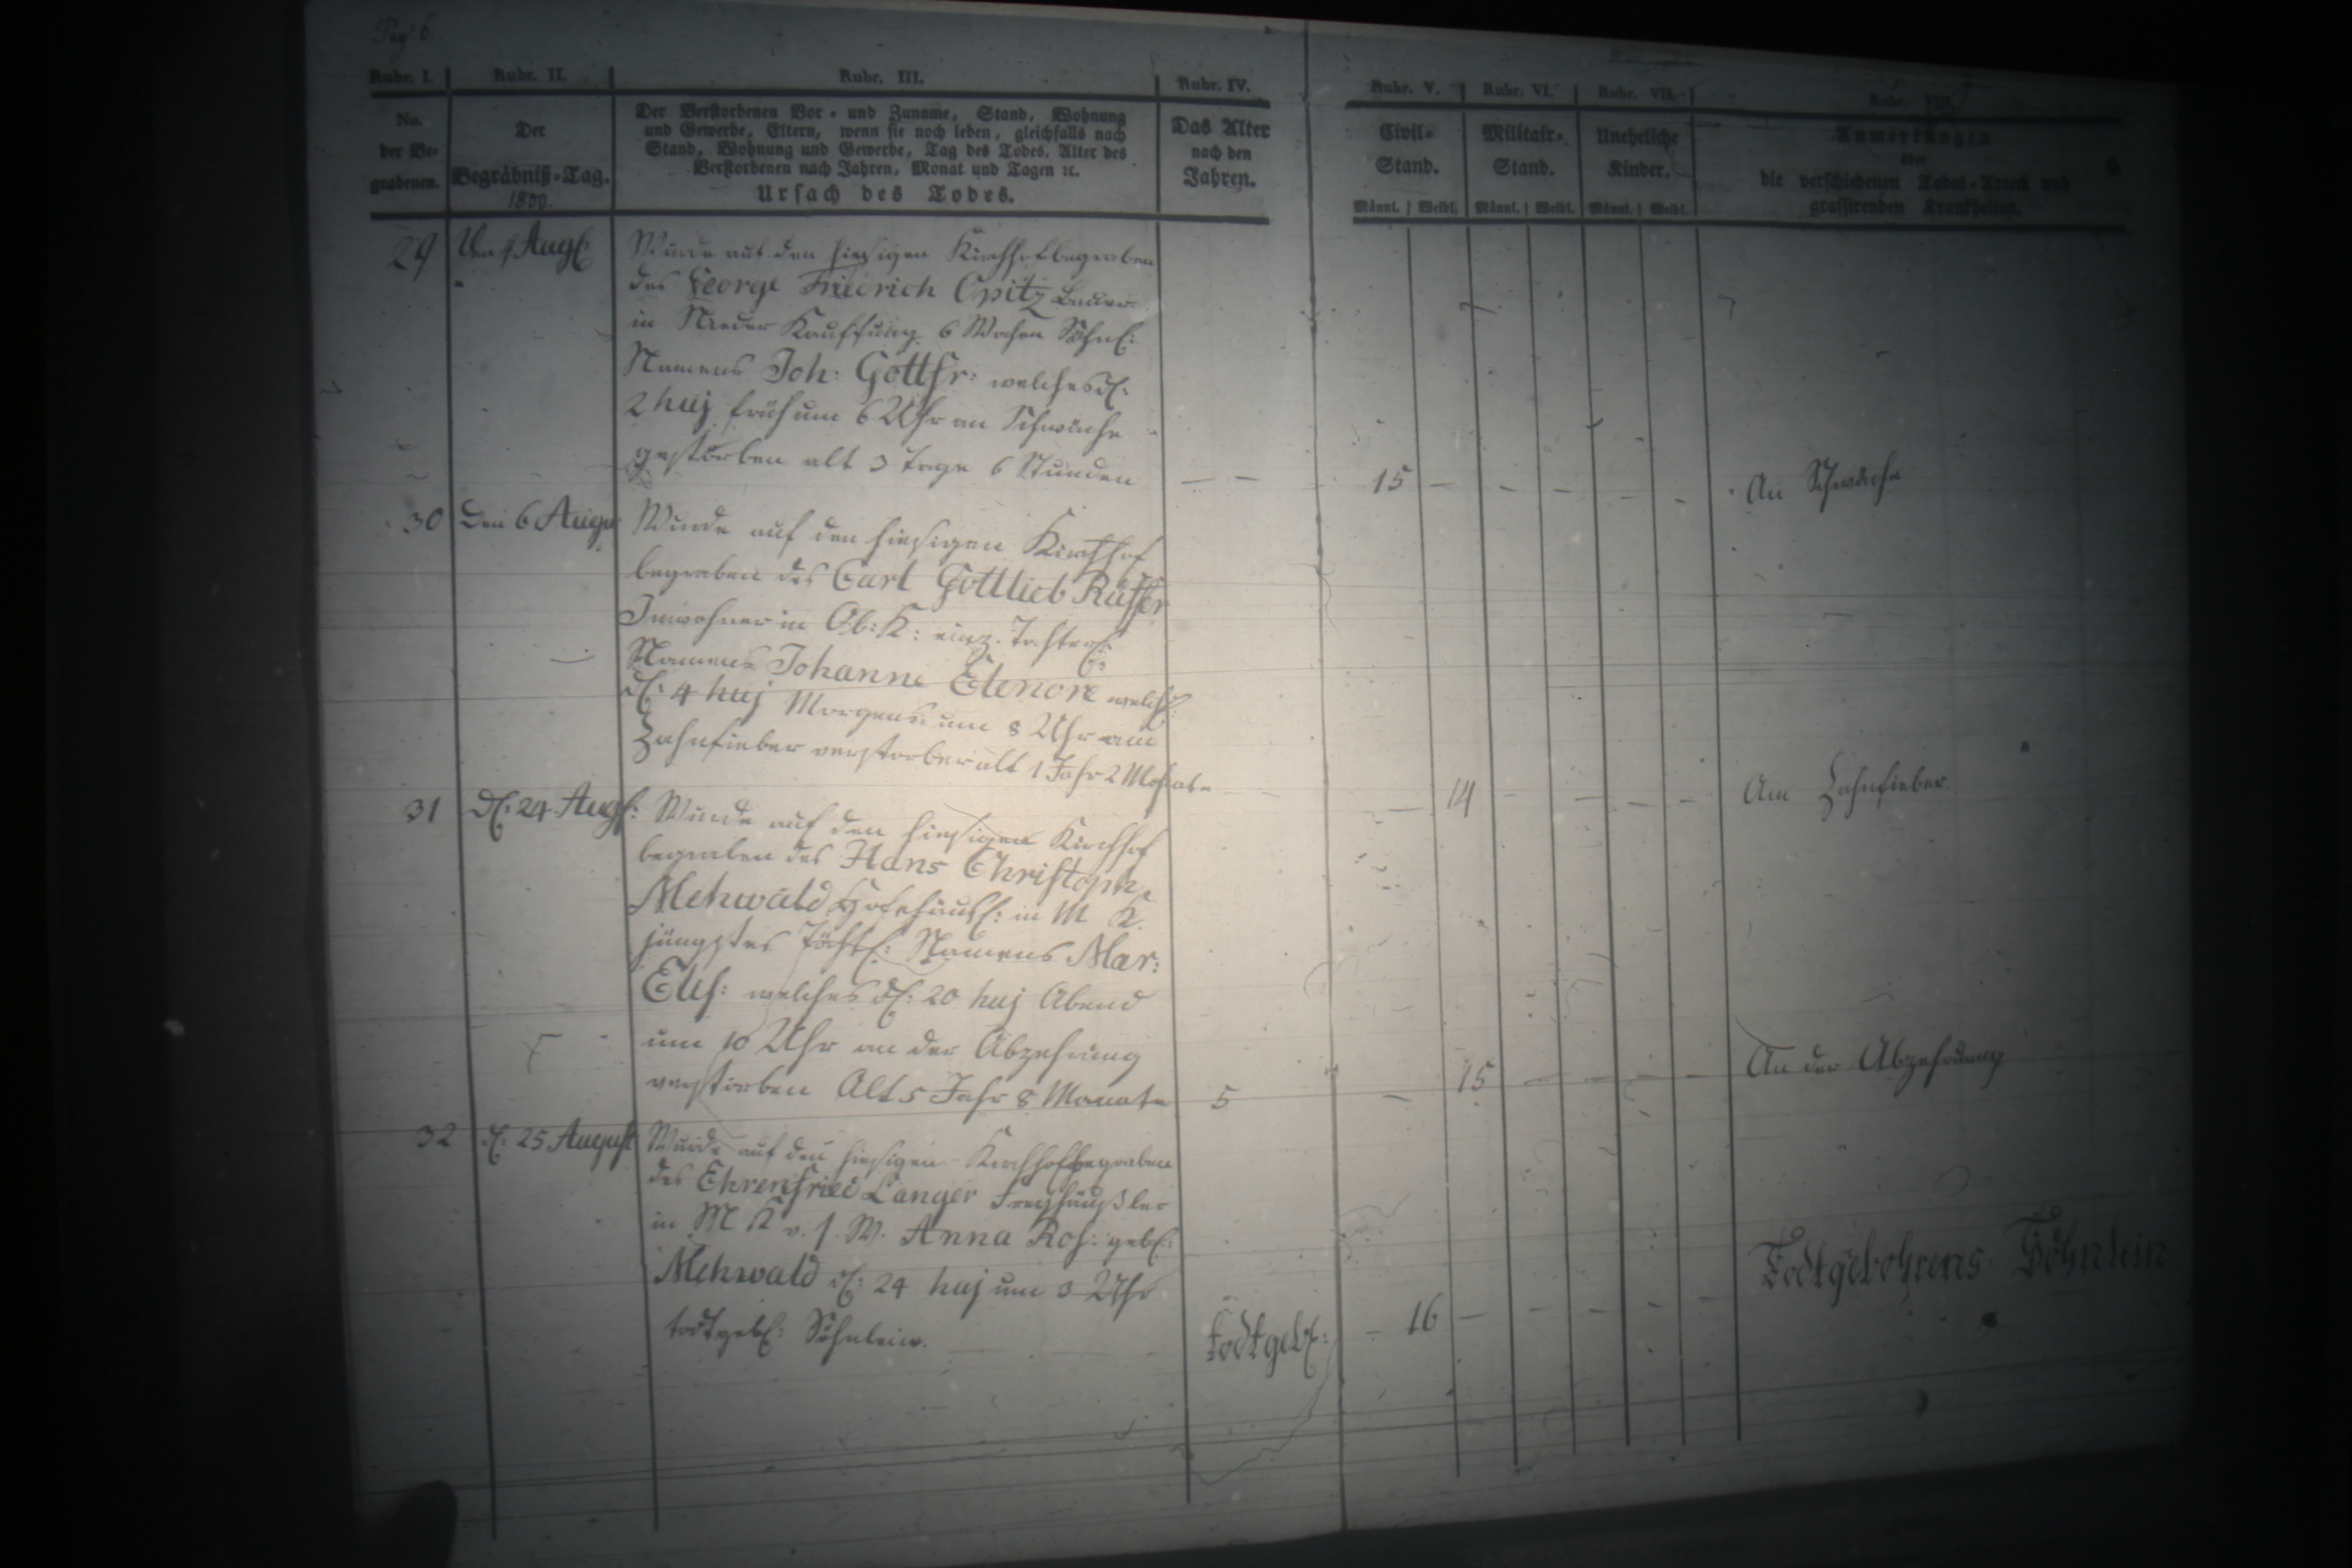 Pag. 6.
Rubr. I. Rubr. II. Rubr. III. Rubr. IV. Rubr. V. Rubr. VI. Rubr. VII. Rubr. VIII.
No. der Begrabenen.
Der Begräbniß-Tag.
1800.
Der Verstorbenen Vor- und Zuname, Stand, Wohnung
und Gewerbe, Eltern, wenn sie noch leben, gleichfalls nach
Stand, Wohnung und Gewerbe, Tag des Todes, Alter des
Verstorbenen nach Jahren, Monat und Tagen ꝛc.
Ursach des Todes.
Das Alter
nach den
Jahren.
Civil-
Stand.
Militair-
Stand.
Uneheliche
Kinder.
Anmerkungen
über
die verschiedenen Todes-Arten und
grassirenden Krankheiten.
Männl. Weibl. Männl. Weibl. Männl. Weibl.
29 Augl:
Wurde auf den hiesigen Kirchhof begraben
des George Friedrich Opitz Bauer
in Nieder Kauffung 6 Wochen Söhnl:
Namens Joh: Gottfr: welches dl:
2 huj früh um 6 Uhr an Schwäche
gestorben alt 3 Tage 6 Stunden — — 15 — — — — — An Schwäche
30 Den 6 Augu
Wurde auf den hiesigen Kirchhof
begraben des Carl Gottlieb Rüffer
Inwohner in Ob: K: einz. Tochterl:
Namens Johanne Elenore welchl:
dl: 4 huj Morgens um 8 Uhr am
Zahnfieber verstorben alt 1 Jahr 2 Monate — 14 — — — — Am Zahnfieber
31 dl: 24 Augl:
Wurde auf den hiesigen Kirchhof
begraben des Hans Christoph
Mehwald Hofehäusl: in M K.
jüngstes Töchtl: Namens Mar:
Elis: welches dl: 20 huj Abend
um 10 Uhr an der Abzehrung
verstorben Alt 5 Jahr 8 Monate 5 — 15 — — — — An der Abzehrung
32 d: 25 August
Wurde auf den hiesigen Kirchhof begraben
des Ehrenfried Langer Freyhäußler
in M K v. s. W. Anna Ros: gebl:
Mehwald dl: 24 huj um 3 Uhr
todtgebl: Söhnlein. Todtgebl: — 16 — — — — — Todtgebohrenes Söhnlein